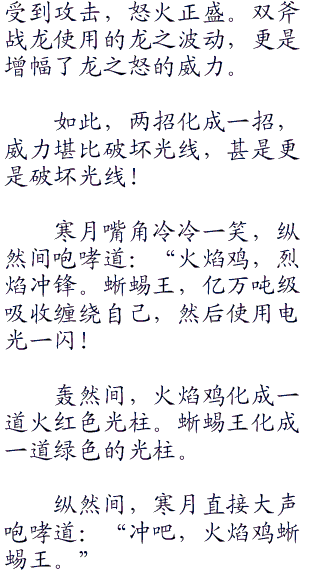 受到攻击，怒火正盛。双斧
战龙使用的龙之波动，更是
增幅了龙之怒的威力。
如此，两招化成一招，
威力堪比破坏光线，甚是更
是破坏光线！
寒月嘴角冷冷一笑，纵
然间咆哮道：“火焰鸡，烈
焰冲锋。蜥蜴王，亿万吨级
吸收缠绕自己，然后使用电
光一闪！
轰然间，火焰鸡化成一
道火红色光柱。蜥蜴王化成
一道绿色的光柱。
纵然间，寒月直接大声
咆哮道：“冲吧，火焰鸡蜥
蜴王。”